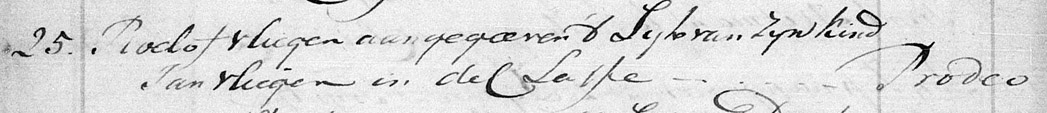 25. Roelof vliegen aangegeeven t Lijk van zyn kind
Jan vliegen in de Classe — . . . — Prodeo